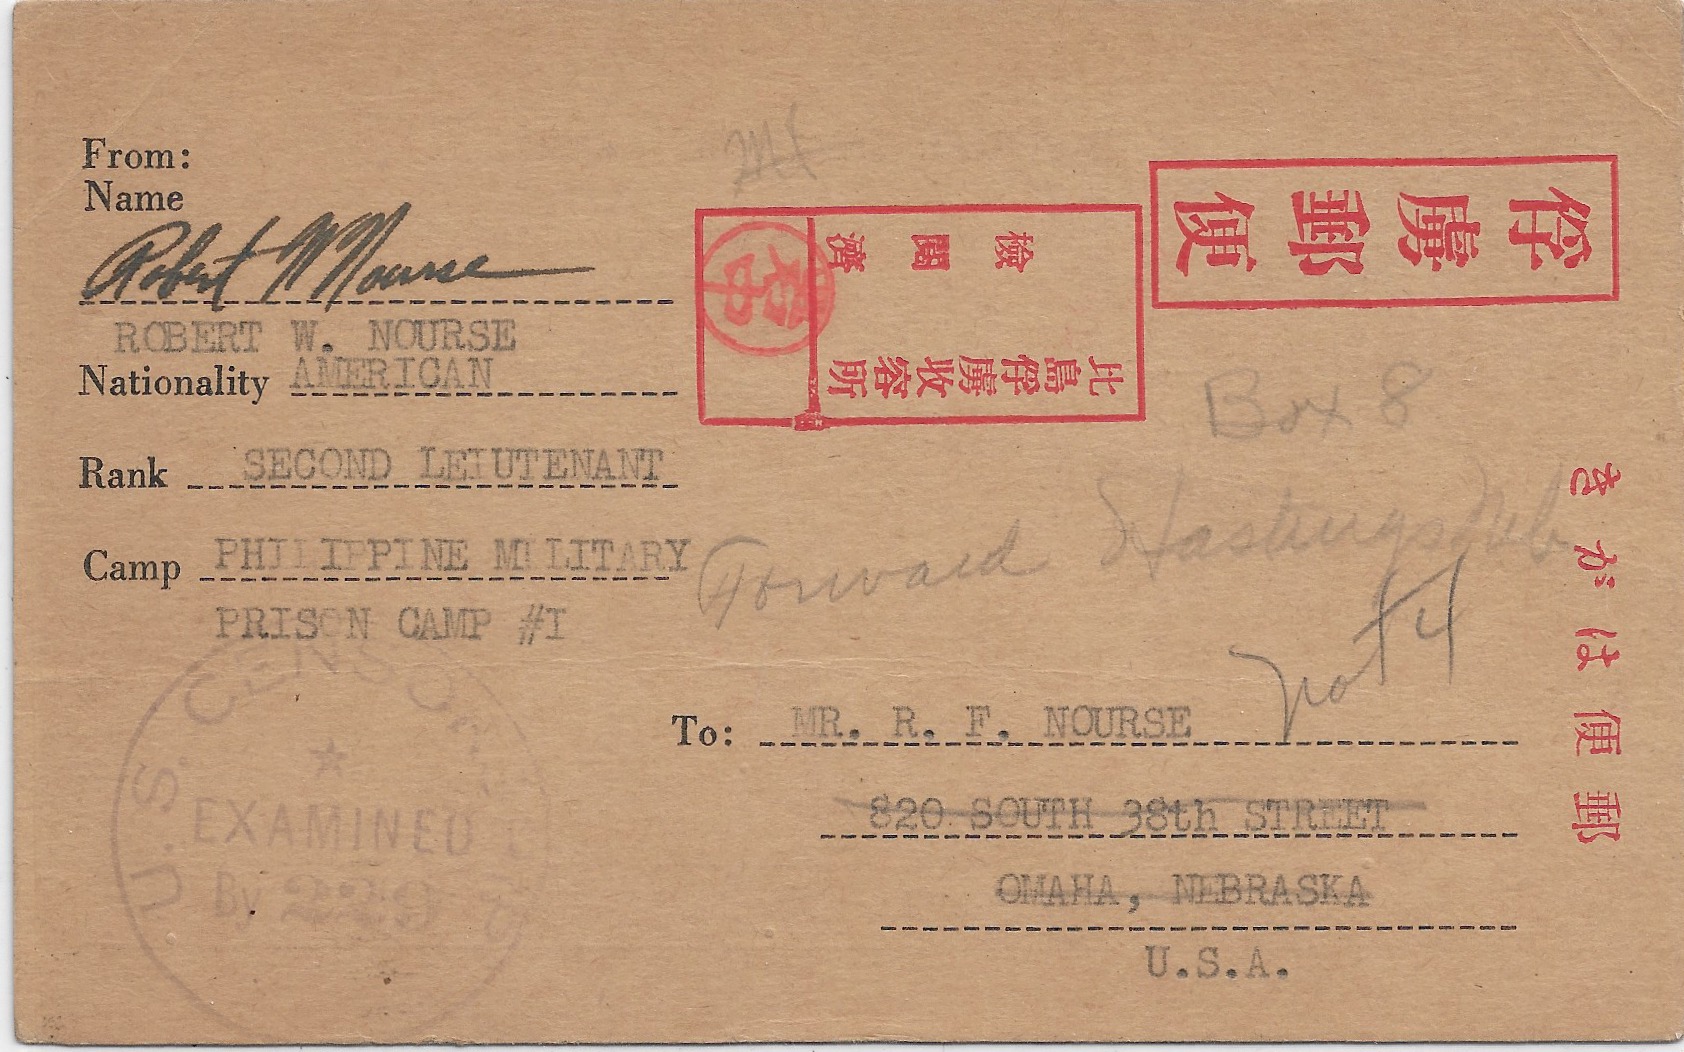 From:
Name
Robert W Nourse
ROBERT W. NOURSE
Nationality AMERICAN
Rank SECOND LEIUTENANT
Camp PHILIPPINE MILITARY
PRISON CAMP #I
俘虜郵便
檢閲濟
比島俘虜收容所
Box 8
Forward Hastings Neb
not 4
きがは便郵
To: MR. R. F. NOURSE
820 SOUTH 38th STREET
OMAHA, NEBRASKA
U.S.A.
U.S. CENSOR
EXAMINED
By